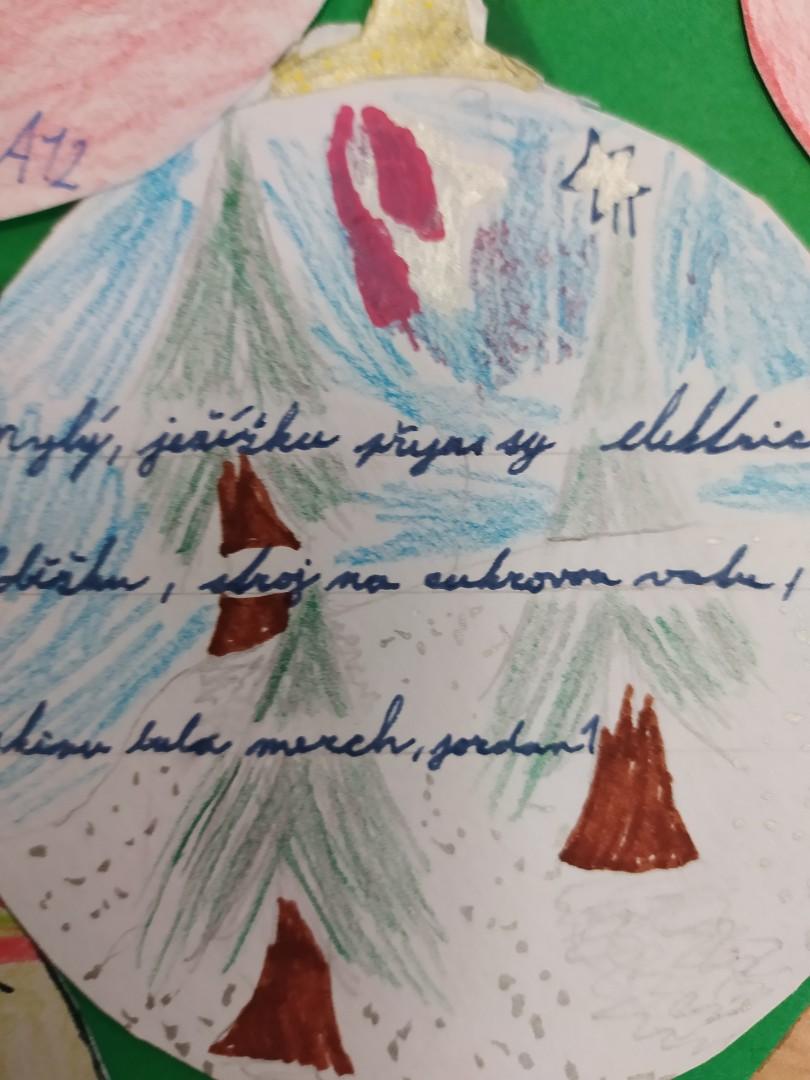 A12
rylý, ježíšku přyns sy elektric
oběžku, stroj na cukrovou vatu,
kinu tula merch, jordan1